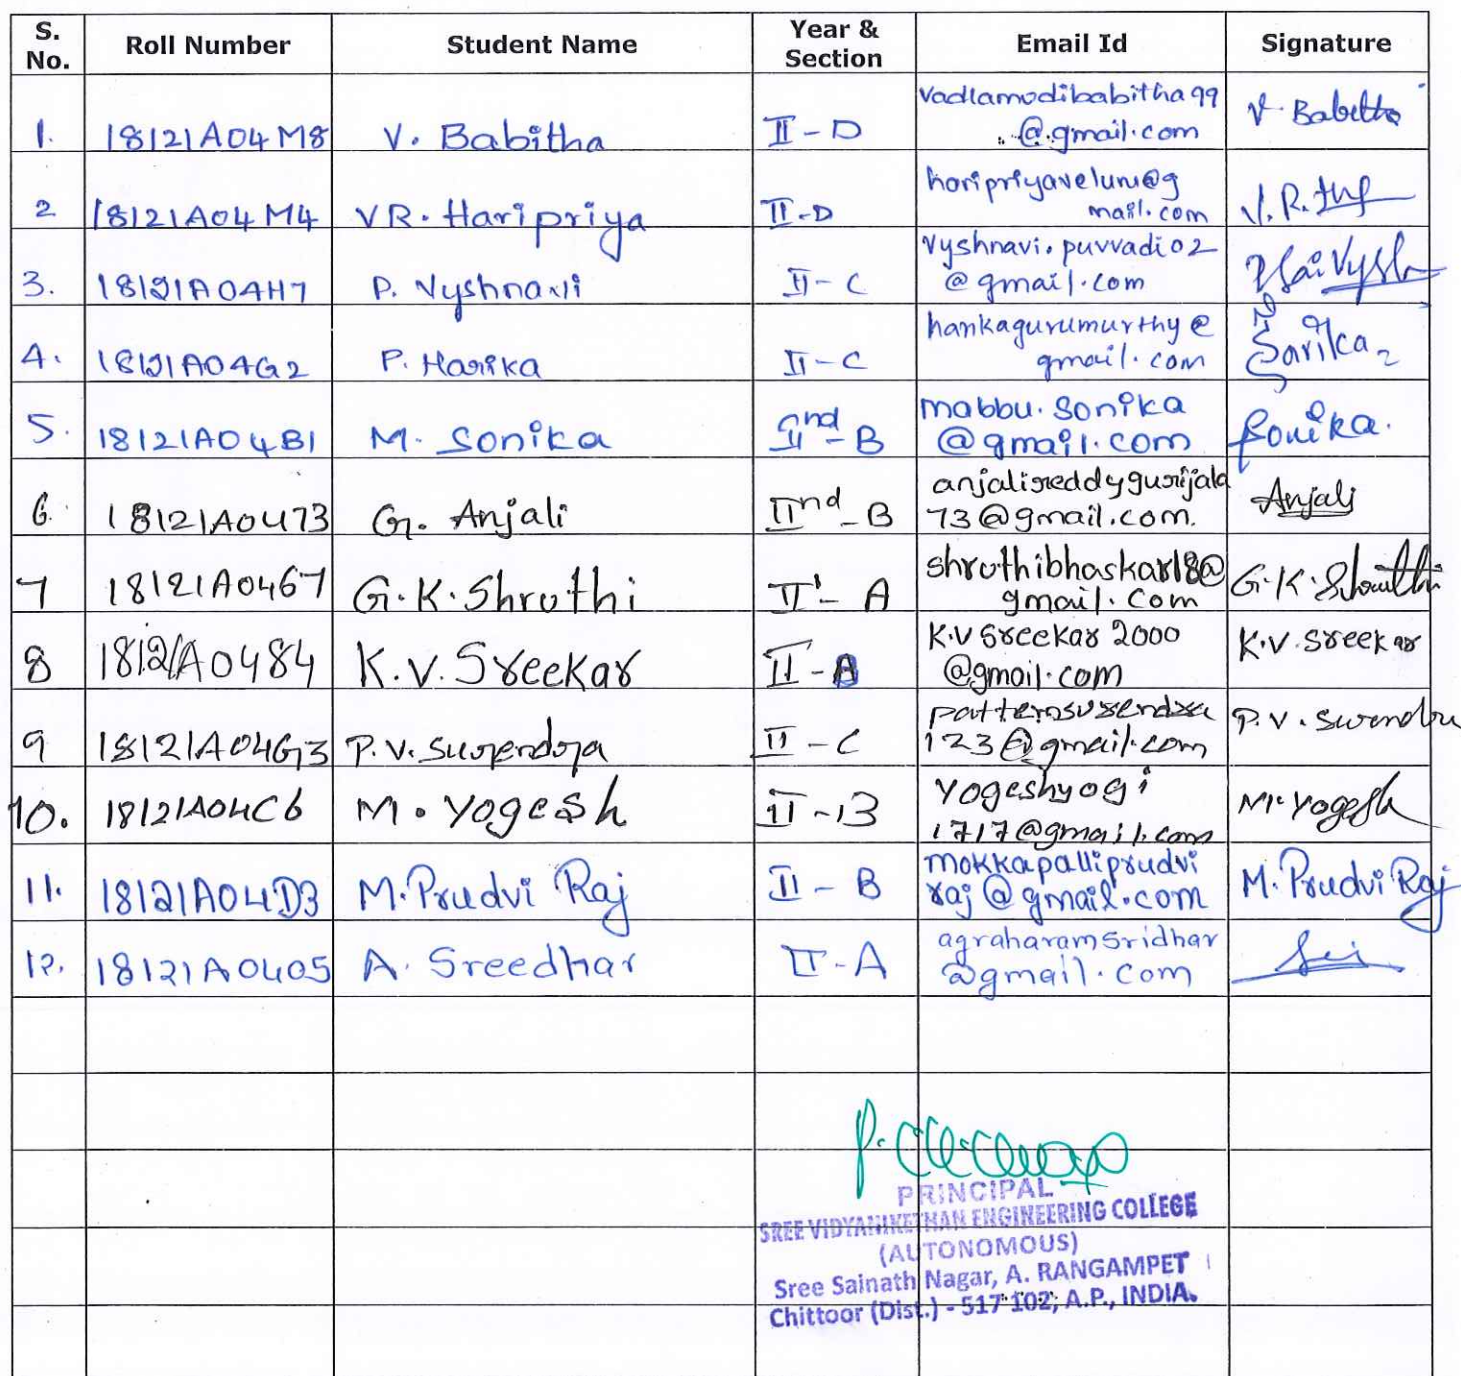 S. No. Roll Number Student Name Year & Section Email Id Signature
1. 18121A04M8 V. Babitha II-D vadlamodibabitha99 @gmail.com V. Babitha
2 18121A04M4 VR. Haripriya II-D haripriyaveluru@g mail.com V.R.
3. 18121A04H7 P. Vyshnavi II-C vyshnavi.puvvadi02 @gmail.com
4. 18121A04G2 P. Harika II-C harikagurumurthy@ gmail.com Harika
5. 18121A04B1 M. Sonika IInd-B mabbu.sonika @gmail.com Sonika.
6. 18121A0473 G. Anjali IInd-B anjalireddygurijala 73@gmail.com. Anjali
7 18121A0467 G.K.Shruthi II-A shruthibhaskar18@ gmail.com G.K.Shruthi
8 18121A0484 K.V.Sreekar II-A K.V Sreekar 2000 @gmail.com K.V.Sreekar
9 18121A04G3 P.V.Surendra II-C patternsurendra 123@gmail.com P.V.Surendra
10. 18121A04C6 M. Yogesh II-B Yogeshyogi 1717@gmail.com M. Yogesh
11. 18121A04D3 M. Prudvi Raj II-B mokkapalliprudvi raj@gmail.com M. Prudvi Raj
12. 18121A0405 A. Sreedhar II-A agraharamsridhar @gmail.com Sri
PRINCIPAL
SREE VIDYANIKETHAN ENGINEERING COLLEGE
(AUTONOMOUS)
Sree Sainath Nagar, A. RANGAMPET
Chittoor (Dist.) - 517 102, A.P., INDIA.